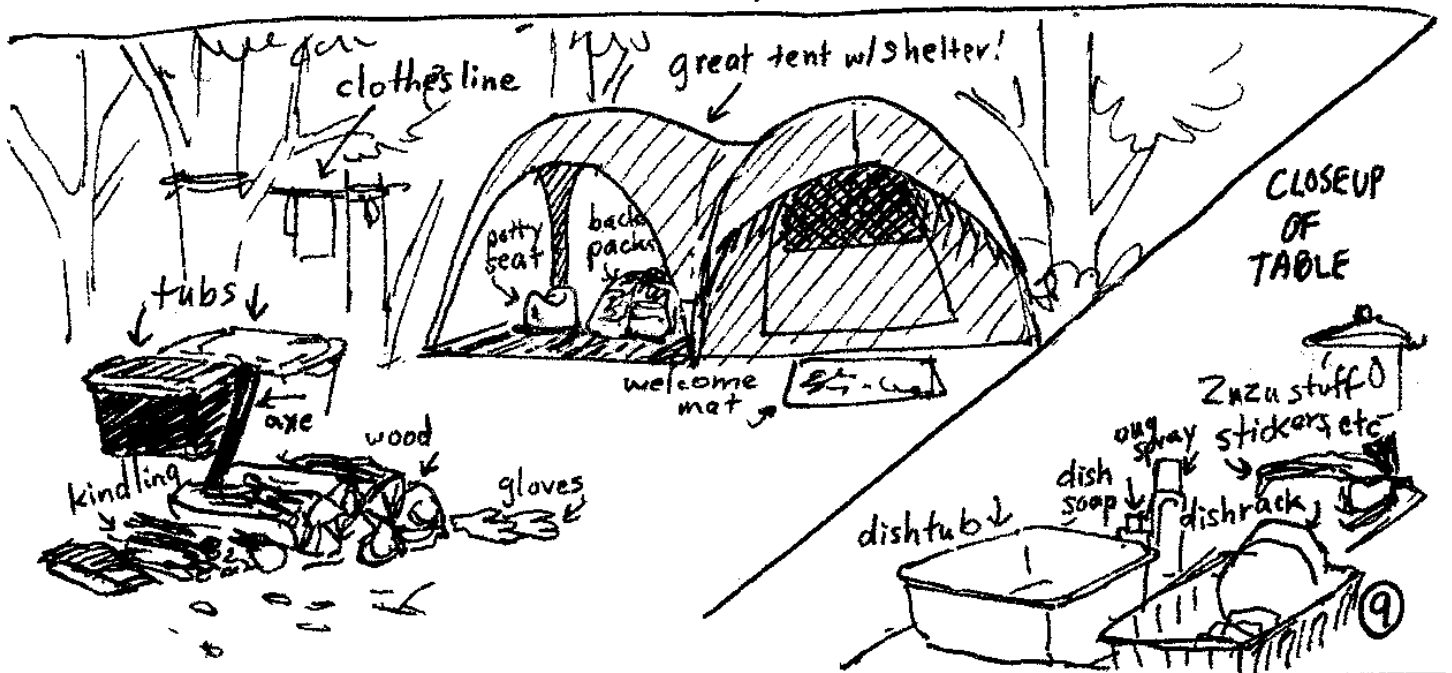 clothesline
great tent w/shelter!
potty
seat
back
packs
tubs
axe
welcome
mat
wood
kindling
gloves
CLOSEUP
OF
TABLE
Zuzu stuff
stickers, etc
bug
spray
dish
soap
dishtub
dishrack
9